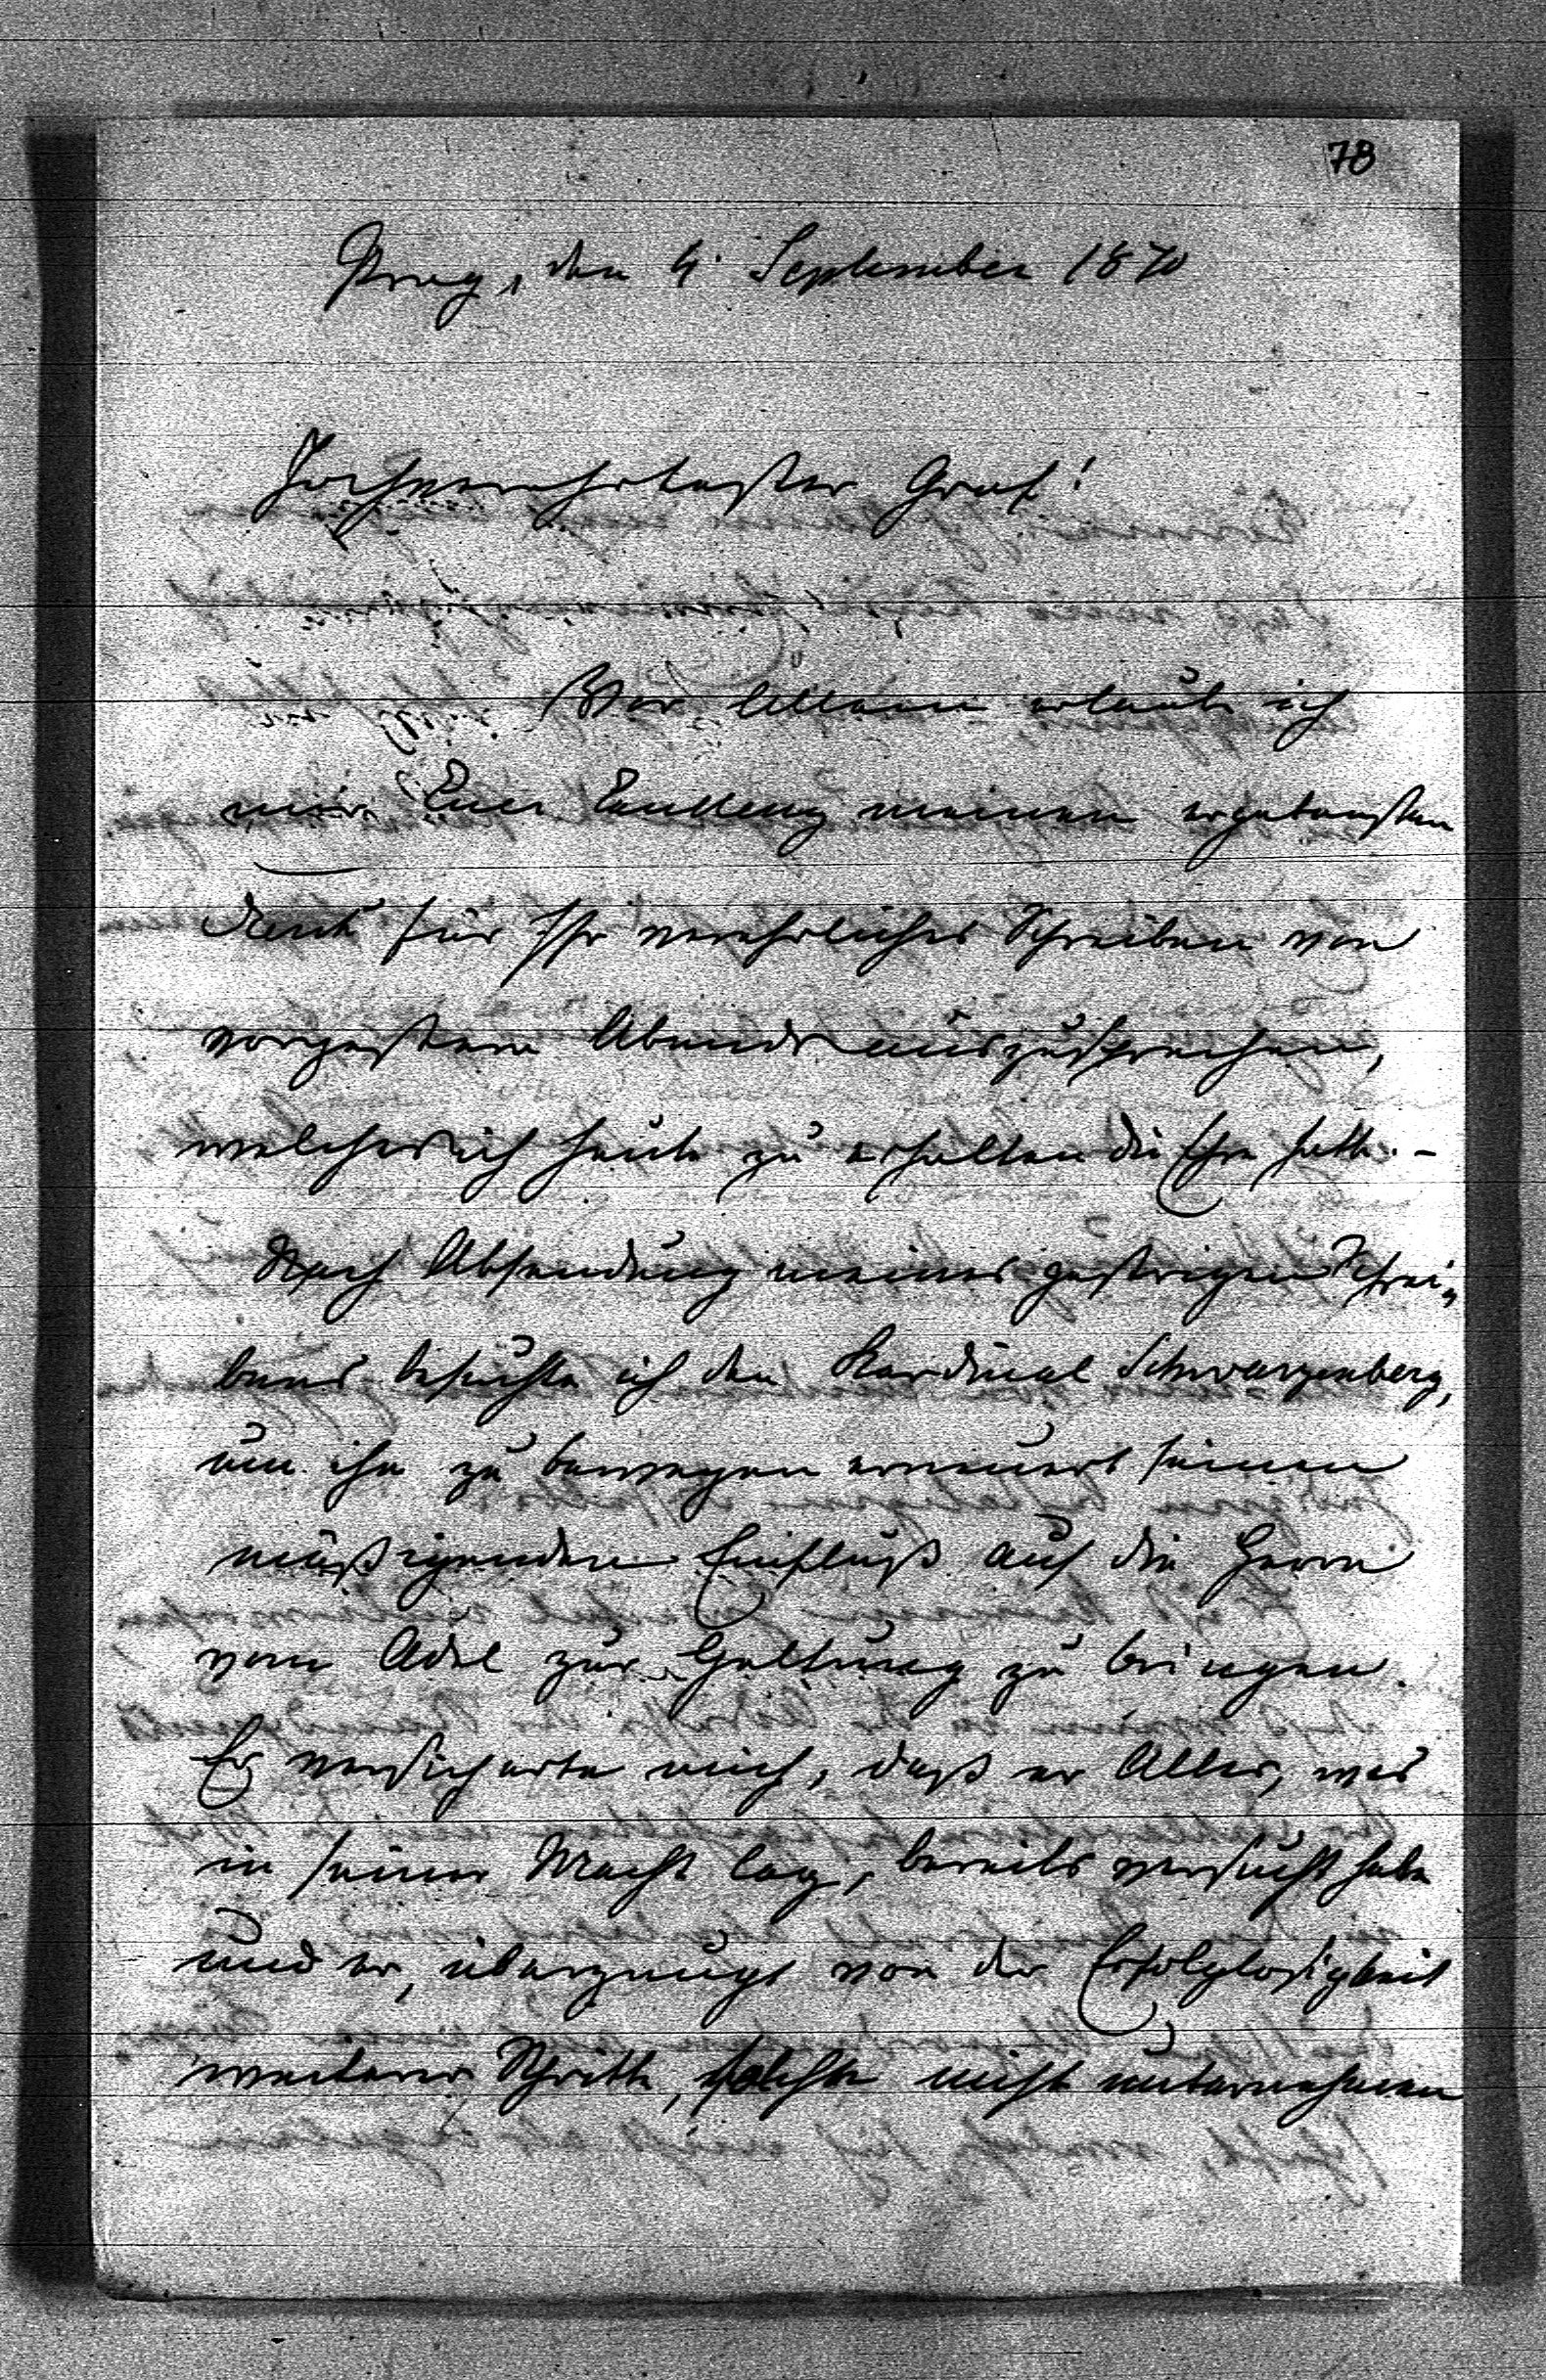 78
Prag, den 4. September 1870
Hochverehrtester Graf!
Vor Allem erlaube ich
mir Euer Excellenz meinen ergebensten
Dank für Ihr verehrliches Schreiben von
vorgestern Abends auszusprechen,
welches ich heute zu erhalten die Ehre hatte. -
Nach Absendung meines gestrigen Schrei„
bens besuchte ich den Kardinal Schwarzenberg,
um ihn zu bewegen erneuert seinen
mäßigenden Einfluß auf die Herrn
vom Adel zur Geltung zu bringen.
Er versicherte mich, daß er Alles, was
in seiner Macht lag, bereits versucht habe
und er, überzeugt von der Erfolglosigkeit
weiterer Schritte, solche nicht unternehmen